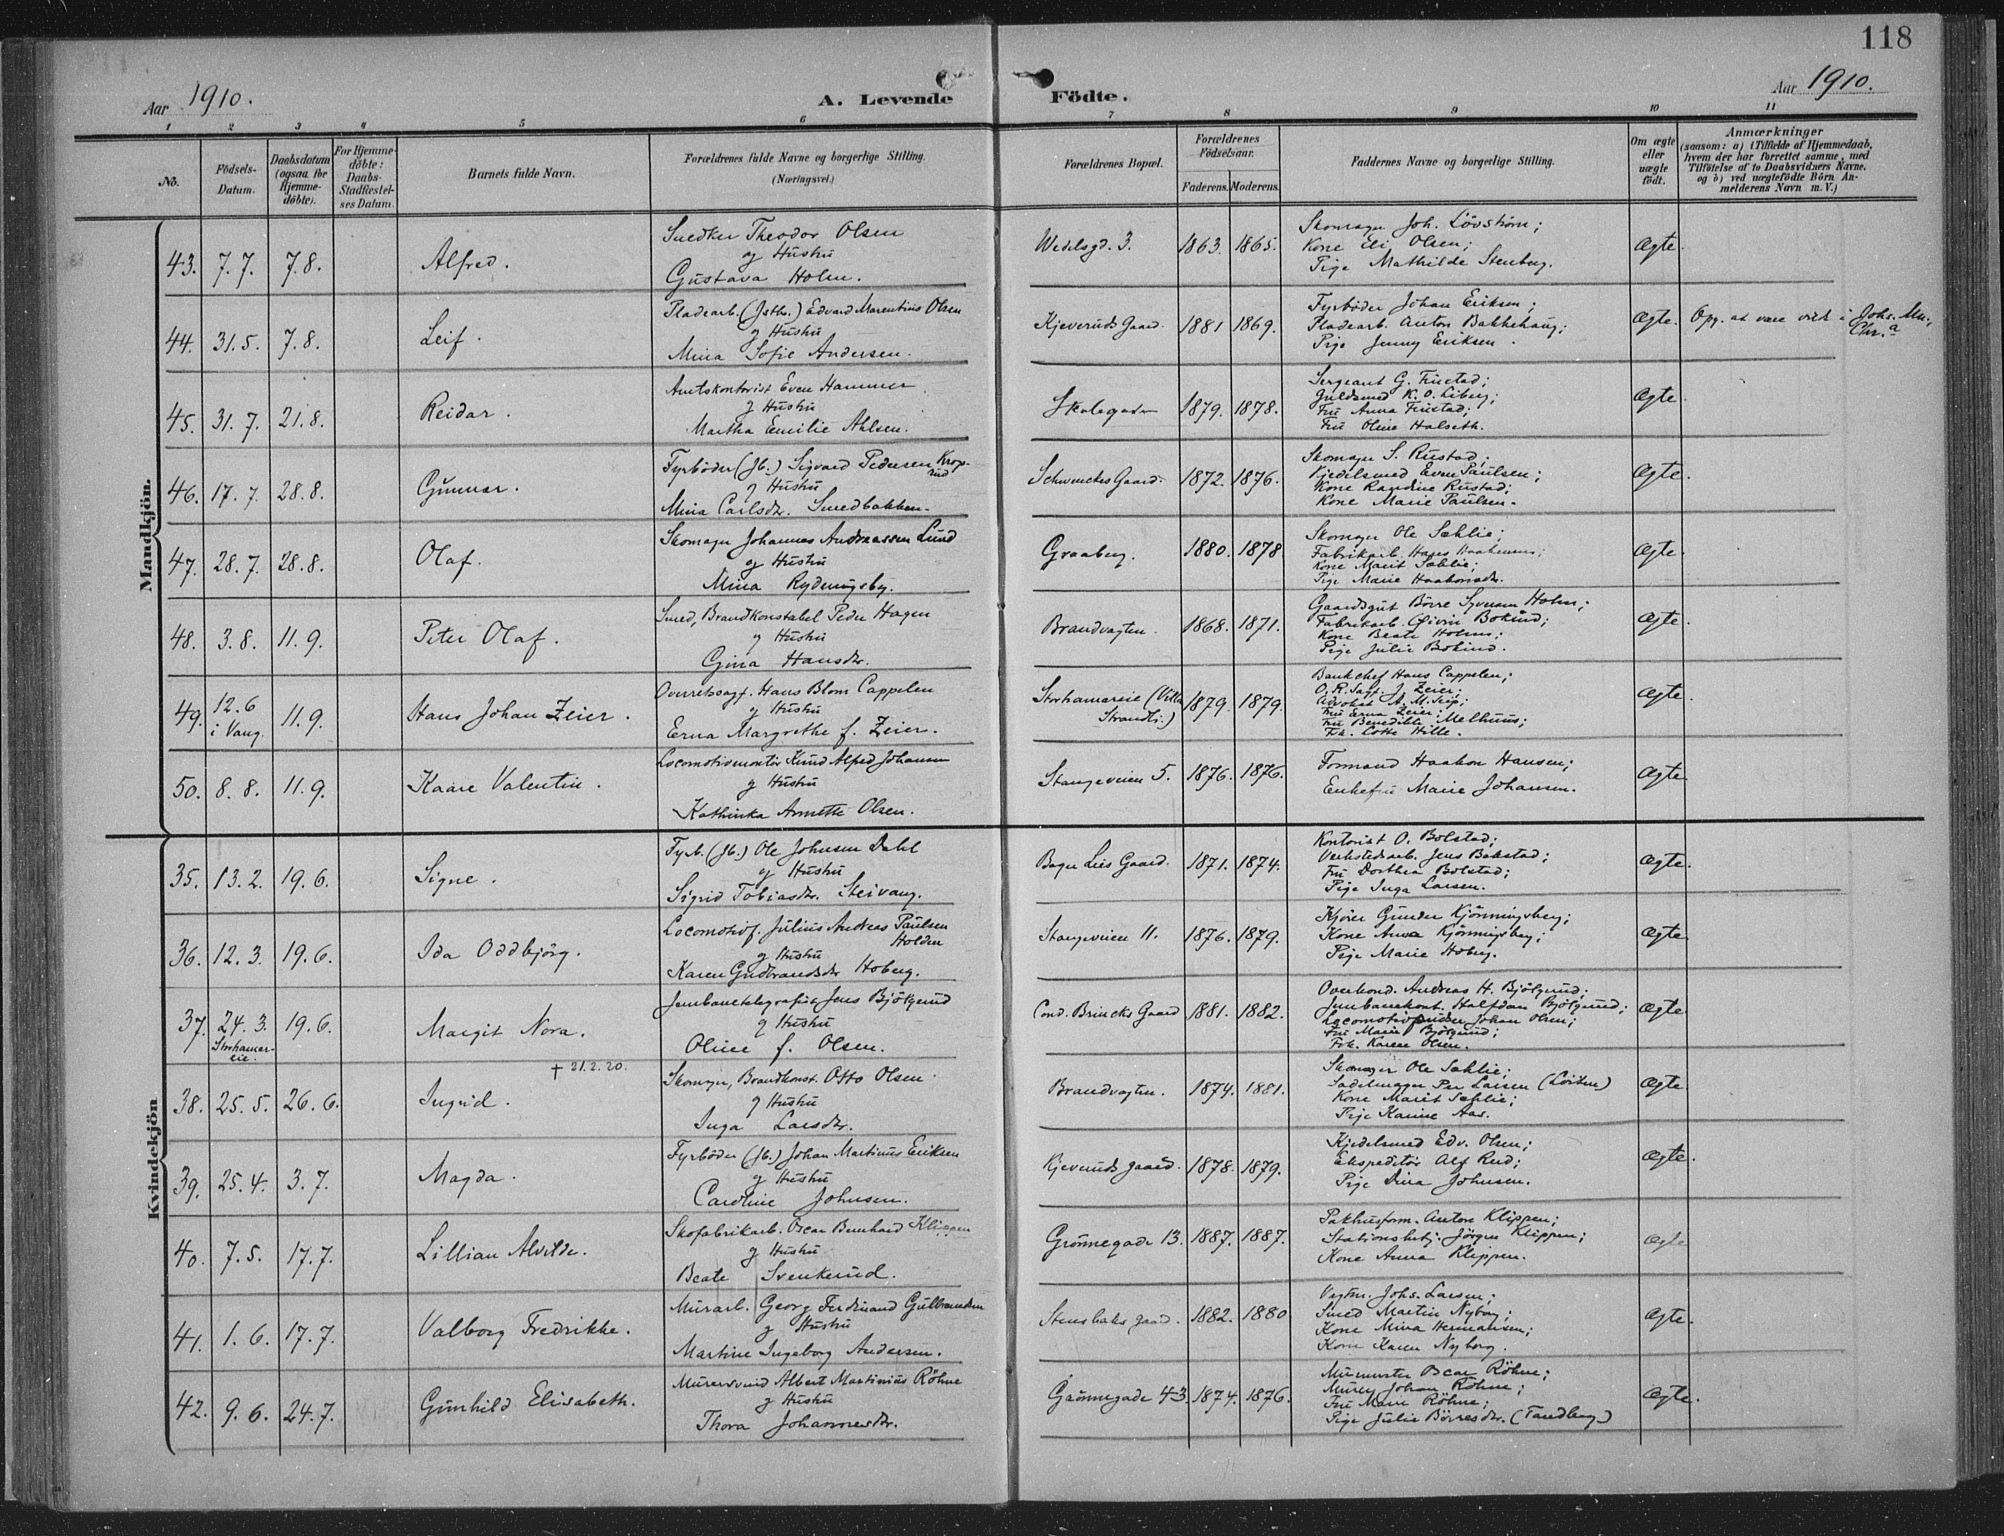 118
Aar 1910.
A. Levende Födte.
Aar 1910.
1 2 3 4 5 6 7 8 9 10 11
No.
Födsels-
Datum.
Daabsdatum
(ogsaa for
Hjemme-
döbte).
For Hjemme-
döbte:
Daabs-
Stadfæstel-
ses Datum.
Barnets fulde Navn.
Forældrenes fulde Navne og borgerlige Stilling.
(Næringsvei.)
Forældrenes Bopæl.
Forældrenes
Födselsaar.
Faderens. Moderens.
Faddernes Navne og borgerlige Stilling.
Om ægte
eller
uægte
födt.
Anmærkninger
(saasom: a) i Tilfælde af Hjemmedaab,
hvem der har forrettet samme, med
Tilföielse af to Daabsvidners Navne.
og b) ved uægtefödte Börn An-
melderens Navn m. V.)
Mandkjön.
43. 7.7. 7.8. Alfred.
Snedker Theodor Olsen
og Hustru
Gustava Holm.
Wedelsgd. 3. 1863. 1865.
Skomager Joh. Lövström;
Kone Eli Olsen;
Pige Mathilde Stenberg.
Ægte.
44. 31.5. 7.8. Leif.
Pladearb. (Jstb.) Edvard Marentius Olsen
og Hustru
Mina Sofie Andersen.
Kjeveruds Gaard. 1881 1869.
Fyrböder Johan Eriksen;
Pladearb. Anton Bakkehaug;
Pige Jenny Eriksen.
Ægte. Opg. at være viet i Joh. Men.,
Chr.a
45. 31.7. 21.8. Reidar.
Amtskontorist Even Hammer
og Hustru
Martha Emilie Ahlsen.
Skolegaden 1879. 1878.
Sergeant G. Frustad;
Guldsmed K. O. Liberg;
Fru Anna Frustad;
Fru Oline Halseth.
Ægte.
46. 17.7. 28.8. Gunnar.
Fyrböder (Jb.) Sigvard Pedersen Krop-
rud
og Hustru
Mina Carlsdr. Smedbakken.
Schwenckes Gaard. 1872. 1876.
Skomager S. Rustad;
Kjedelsmed Even Paulsen;
Kone Randine Rustad;
Kone Marie Paulsen.
Ægte.
47. 28.7. 28.8. Olaf.
Skomager Johannes Andreassen Lund
og Hustru
Mina Rydningsby.
Graaberg. 1880. 1878
Skomager Ole Sæhlie;
Fabrikarb. Hans Haakensen;
Kone Marit Sæhlie;
Pige Marie Haakonsdr.
Ægte.
48. 3.8. 11.9. Peter Olaf.
Smed, Brandkonstabel Peder Hagen
og Hustru
Gina Hansdr.
Brandvagten. 1868. 1871.
Gaardsgut Börre Syversen Holm;
Fabrikarb. Eivin Boknud;
Kone Beate Holm;
Pige Julie Boknud.
Ægte.
49. 12.6
i Vang. 11.9. Hans Johan Zeier.
Overretssagf. Hans Blom Cappelen
og Hustru
Erna Margrethe f. Zeier.
Storhamarsie (Villa
Strandli.) 1879. 1879.
Bankchef Hans Cappelen;
O. R. Sagf. J. Zeier;
Advokat A. M. Seip;
Fru Erna Zeier;
Fru Benedikte Melhuus;
Frk. Lotte Hille.
Ægte.
50. 8.8. 11.9. Kaare Valentin.
Locomotivmontör Knud Alfred Johansen
og Hustru
Kathinka Annette Olsen.
Stangeveien 5. 1876. 1876.
Formand Haakon Hansen;
Enkefru Marie Johansen.
Ægte.
Kvindekjön
35. 13.2. 19.6. Signe.
Fyrb. (Jb.) Ole Johnsen Dahl
og Hustru
Sigrid Tobiasdr. Steivang.
Bager Lies Gaard. 1871. 1874.
Kontorist O. Bolstad;
Verkstedsarb. Jens Bakstad;
Fru Dorthea Bolstad;
Pige Inga Larsen.
Ægte.
36. 12.3. 19.6. Ida Oddbjörg.
Locomotivf. Julius Andreas Paulsen
Holden
og Hustru
Karen Gudbrandsdr Hoberg.
Stangeveien 11. 1876. 1879.
Kjörer Gunder Kjönningsberg;
Kone Anna Kjönningsberg;
Pige Marie Hoberg.
Ægte
37. 24.3.
Storhamar-
sie. 19.6. Margit Nora.
Jernbanetelegrafist Jens Bjölgerud
og Hustru
Oline f. Olsen.
Cond. Brincks Gaard 1881. 1882.
Overkond. Andreas H. Bjölgerud;
Jernbanekont. Halfdan Bjölgerud;
Locomotivpudser Johan Olsen;
Fru Marie Bjölgerud;
Frk. Karen Olsen.
Ægte
38. 25.5. 26.6. Ingrid.
† 21.2.20.
Skomager, Brandkonst. Otto Olsen
og Hustru
Inga Larsdr.
Brandvagten. 1874. 1881.
Skomager Ole Sæhlie;
Sadelmager Per Larsen (Löiten)
Kone Marit Sæhlie;
Pige Karine Aas.
Ægte
39. 25.4. 3.7. Magda.
Fyrböder (Jb.) Johan Martinus Eriksen
og Hustru
Caroline Johnsen.
Kjeveruds gaard. 1878. 1879.
Kjedelsmed Edv. Olsen;
Ekspeditör Alf Rud;
Pige Dina Johnsen.
Ægte.
40. 7.5. 17.7. Lillian Alvilde.
Skofabrikarb. Oscar Bernhard Klippen
og Hustru
Beate Svenkerud.
Grönnegade 13. 1887. 1887.
Pakhusform. Anton Klippen;
Stationsbetj. Jörgen Klippen;
Kone Anna Klippen.
Ægte
41. 1.6. 17.7. Valborg Fredrikke.
Murarb. Georg Ferdinand Gulbrandsen
og Hustru
Martine Ingeborg Andersen.
Stensbaks gaard. 1882. 1880
Vogtm. Johs. Larsen;
Smed Martin Nyborg;
Kone Mina Hermansen;
Kone Karen Nyborg.
Ægte.
42. 9.6. 24.7. Gunhild Elisabeth.
Murersvend Albert Martinius Röhne
og Hustru
Thora Johannesdr.
Grönnegade 43. 1874. 1876.
Murmester Oscar Röhne;
Murer Johan Röhne;
Fru Marie Röhne;
Pige Julie Börresdr. (Tandberg)
Ægte.